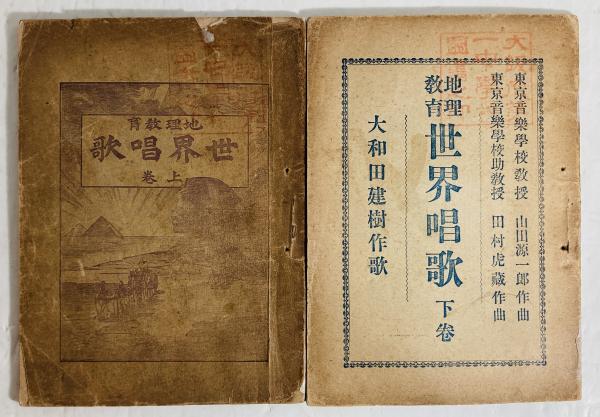 地理教育
世界唱歌
上巻
東京音樂學校教授 山田源一郎作曲
東京音樂學校助教授 田村虎藏作曲
地理教育 世界唱歌 下卷
大和田建樹作歌